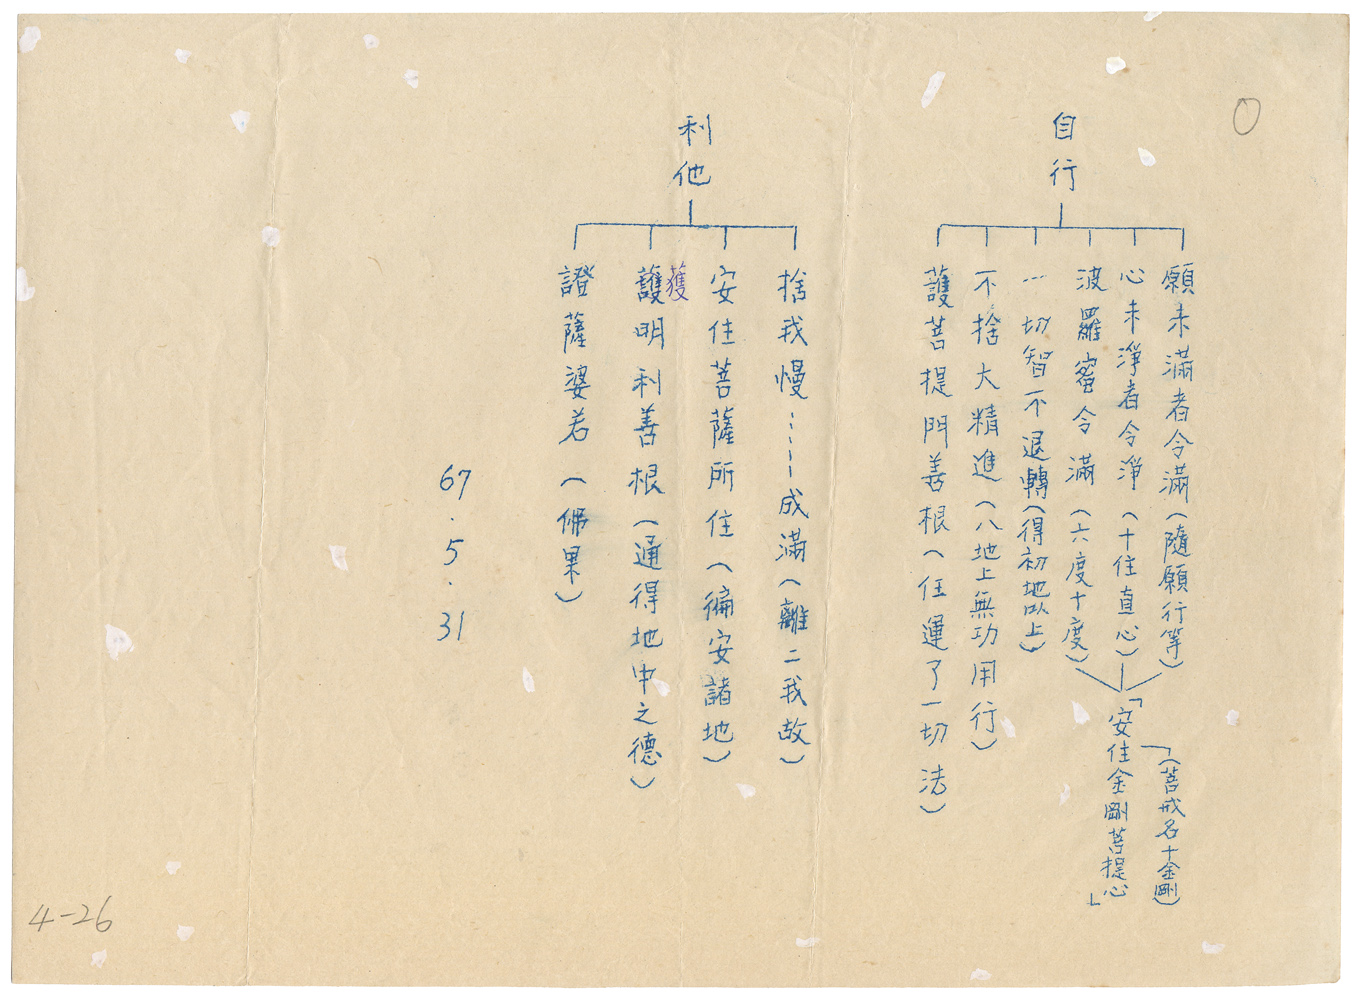 0
自行
願未滿者令滿（隨願行等）
心未淨者令淨（十住直心）
波羅蜜令滿（六度十度）
「安住金剛菩提心」
（菩戒名十金剛）
一切智不退轉（得初地以上）
不捨大精進（八地上無功用行）
護菩提門善根（任運了一切法）
利他
捨我慢……成滿（離二我故）
安住菩薩所住（徧安諸地）
獲
護明利善根（通得地中之德）
證薩婆若（佛果）
67.5.31
4-26